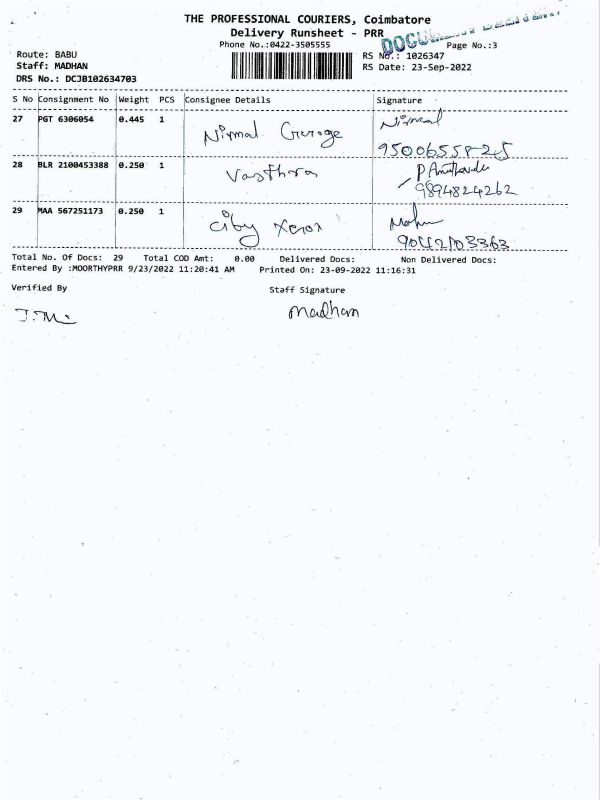 THE PROFESSIONAL COURIERS, Coimbatore
Delivery Runsheet - PRR
DOCUMENT DELIVERY
Phone No.:0422-3505555
Page No.:3
Route: BABU
RS No.: 1026347
Staff: MADHAN
RS Date: 23-Sep-2022
DRS No.: DCJB102634703
S No Consignment No Weight PCS Consignee Details Signature
27 PGT 6306054 0.445 1 Nirmal Garage Nirmal
28 BLR 2100453388 0.250 1 Vasthra
9894824262
29 MAA 567251173 0.250 1 City Xerox
Total No. Of Docs: 29 Total COD Amt: 0.00 Delivered Docs: Non Delivered Docs:
Entered By :MOORTHYPRR 9/23/2022 11:20:41 AM Printed On: 23-09-2022 11:16:31
Verified By Staff Signature
Madhan